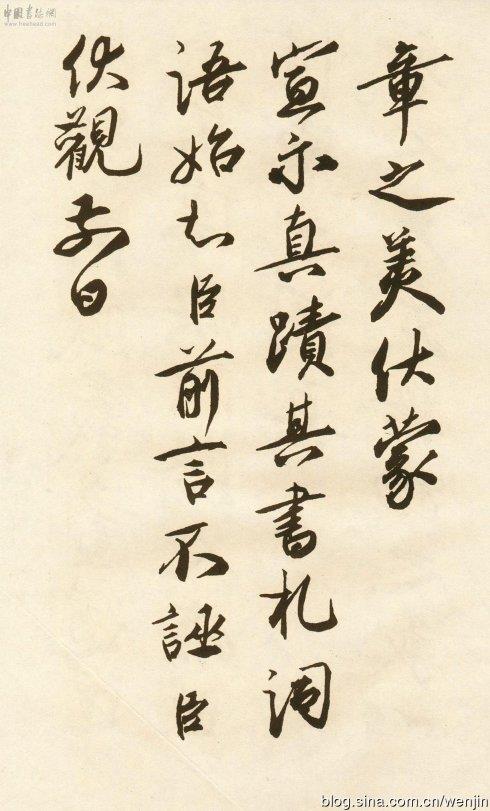 中國書法網
章之美伏蒙
宣示真蹟其書札詞
語始知臣前言不誣臣
伏觀前日
blog.sina.com.cn/wenjin